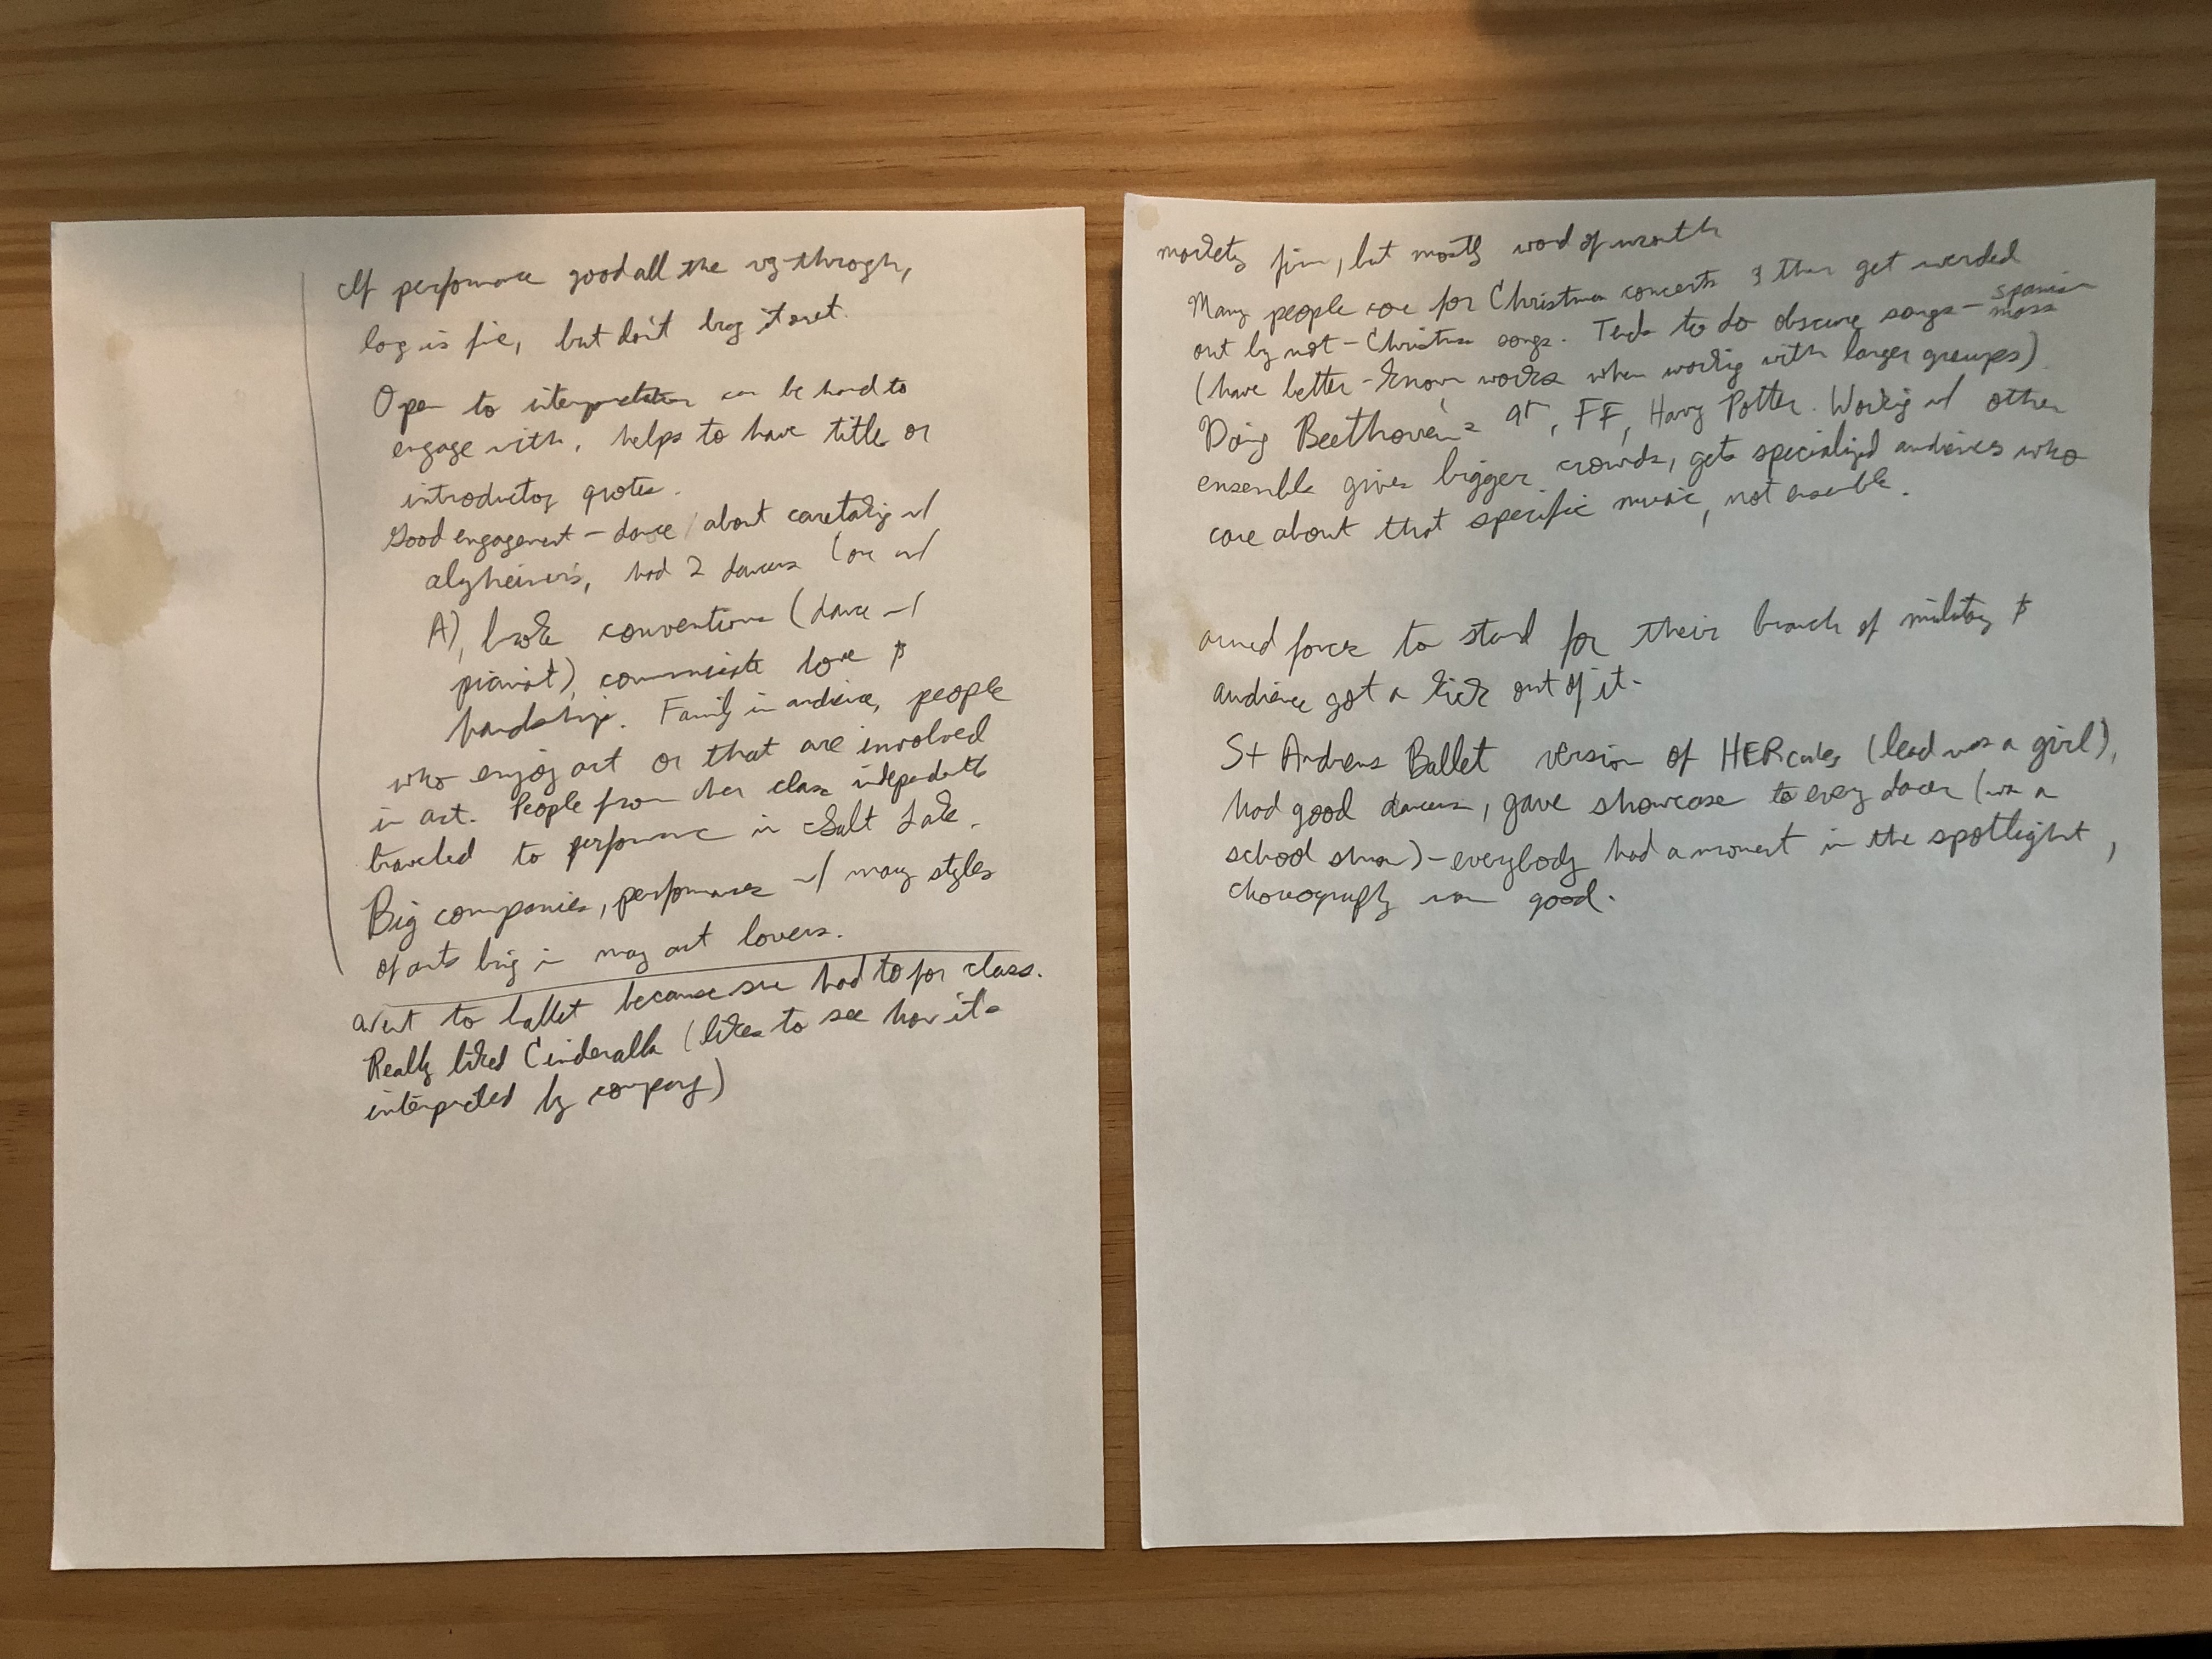 If performance good all the way through,
long is fine, but don't drag it out.
Open to interpretation can be hard to
engage with, helps to have title or
introductory quotes.
Good engagement - dance about caretaking w/
alzheimer's, had 2 dancers (one w/
A), broke conventions (dance w/
pianist), communicate love &
hardship. Family in audience, people
who enjoy art or that are involved
in art. People from her class independently
traveled to performance in Salt Lake.
Big companies, performances w/ many styles
of arts bring in many art lovers.
Went to ballet because she had to for class.
Really liked Cinderalla (likes to see how it's
interpreted by company)
firm, but mostly word of mouth
Many people come for Christmas concerts & then get weirded
out by not-Christmas songs. Tends to do obscure songs - spanish mass
(have better-known works when working with larger groups)
Doing Beethoven's 9th, FF, Harry Potter. Working w/ other
ensemble gives bigger crowds, gets specialized audiences who
care about that specific music, not ensemble.
armed forces to stand for their branch of military &
audience got a kick out of it.
St Andrews Ballet version of HERcules (lead was a girl),
had good dancers, gave showcase to every dancer (was a
school show) - everybody had a moment in the spotlight,
choreography was good.